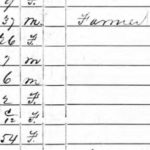 37 m Farmer
26 F
7 m
6 m
2 F
/12 F
54 F